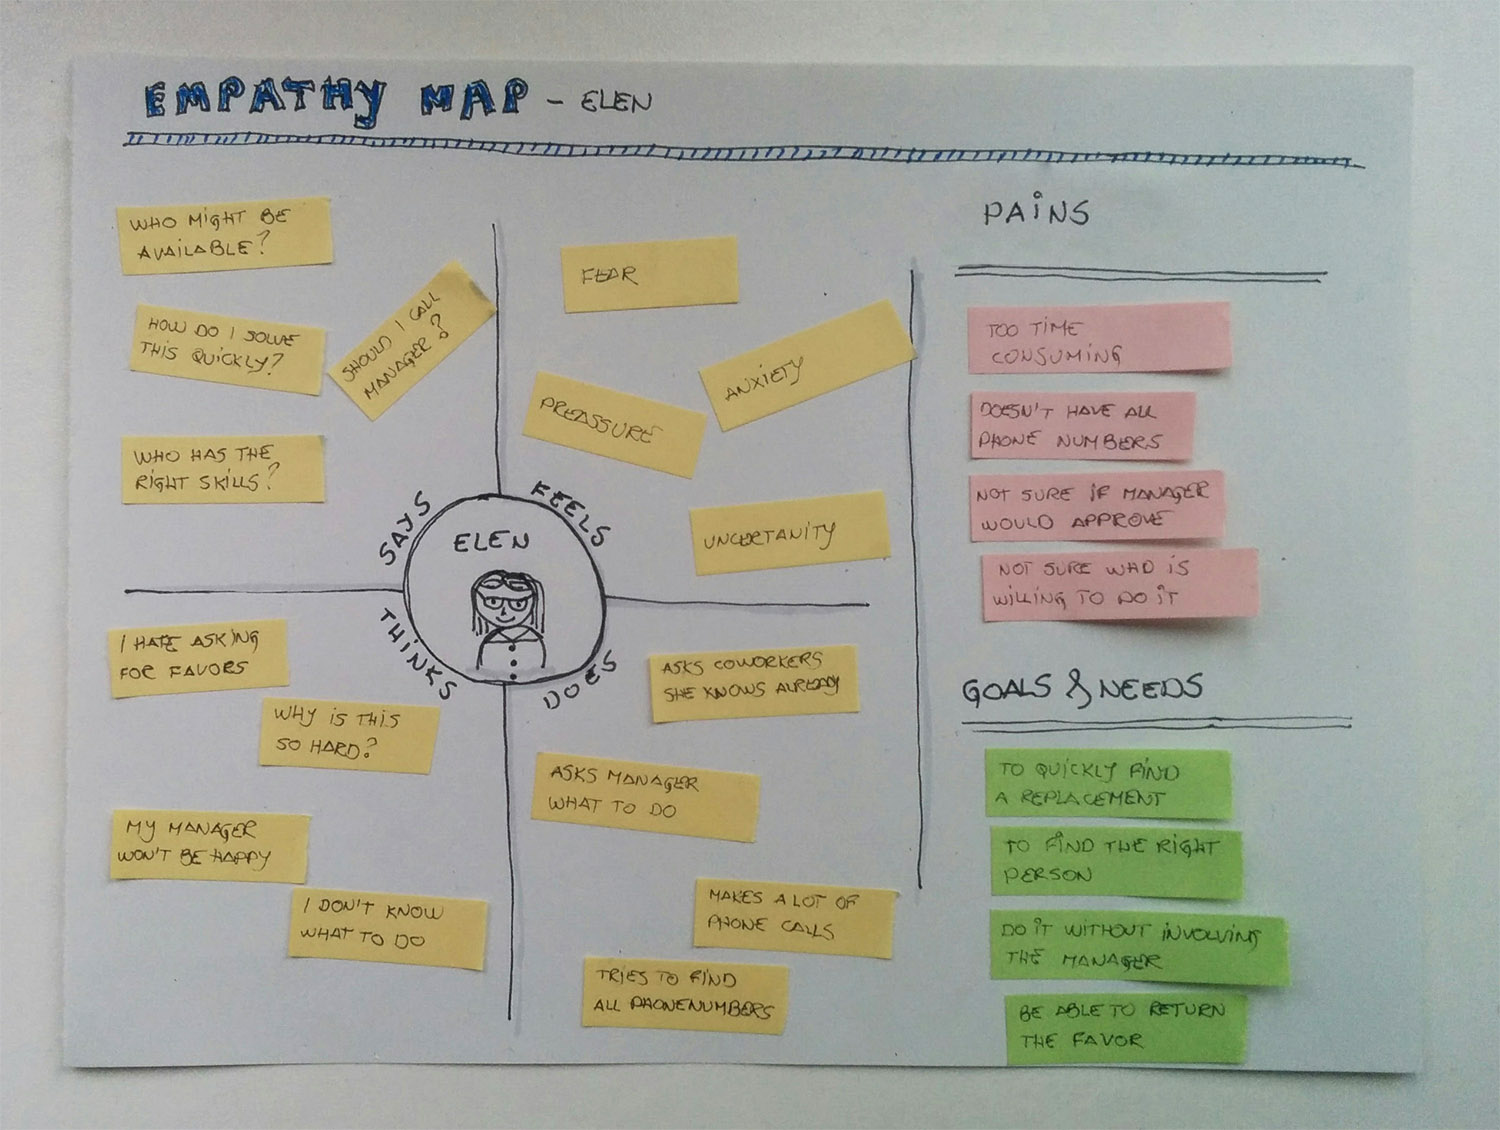 EMPATHY MAP - ELEN
WHO MIGHT BE
AVAILABLE?
HOW DO I SOLVE
THIS QUICKLY?
SHOULD I CALL
MANAGER?
WHO HAS THE
RIGHT SKILLS?
SAYS
FEELS
FEAR
ANXIETY
PREASSURE
UNCERTANITY
ELEN
THINKS
DOES
I HATE ASKING
FOR FAVORS
WHY IS THIS
SO HARD?
MY MANAGER
WON'T BE HAPPY
I DON'T KNOW
WHAT TO DO
ASKS COWORKERS
SHE KNOWS ALREADY
ASKS MANAGER
WHAT TO DO
MAKES A LOT OF
PHONE CALLS
TRIES TO FIND
ALL PHONENUMBERS
PAINS
TOO TIME
CONSUMING
DOESN'T HAVE ALL
PHONE NUMBERS
NOT SURE IF MANAGER
WOULD APPROVE
NOT SURE WHO IS
WILLING TO DO IT
GOALS & NEEDS
TO QUICKLY FIND
A REPLACEMENT
TO FIND THE RIGHT
PERSON
DO IT WITHOUT INVOLVING
THE MANAGER
BE ABLE TO RETURN
THE FAVOR